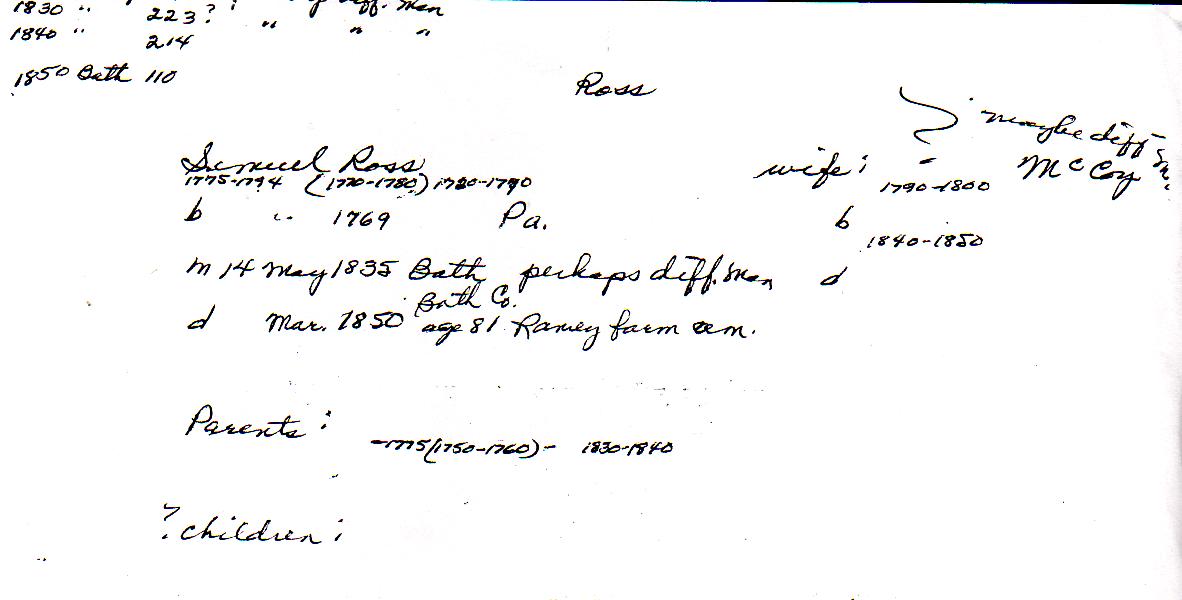 1830 " 223? diff. man
1840 " 214 " " "
1850 Bath 110
Ross
maybe diff
Samuel Ross wife: - McCoy
1775-1794 (1770-1780) 1780-1790 1790-1800
b " 1769 Pa. b
1840-1850
m 14 May 1835 Bath perhaps diff. man d
Bath Co.
d Mar. 1850 age 81 Ramey farm cem.
Parents:
-1775 (1750-1760) - 1830-1840
? children: